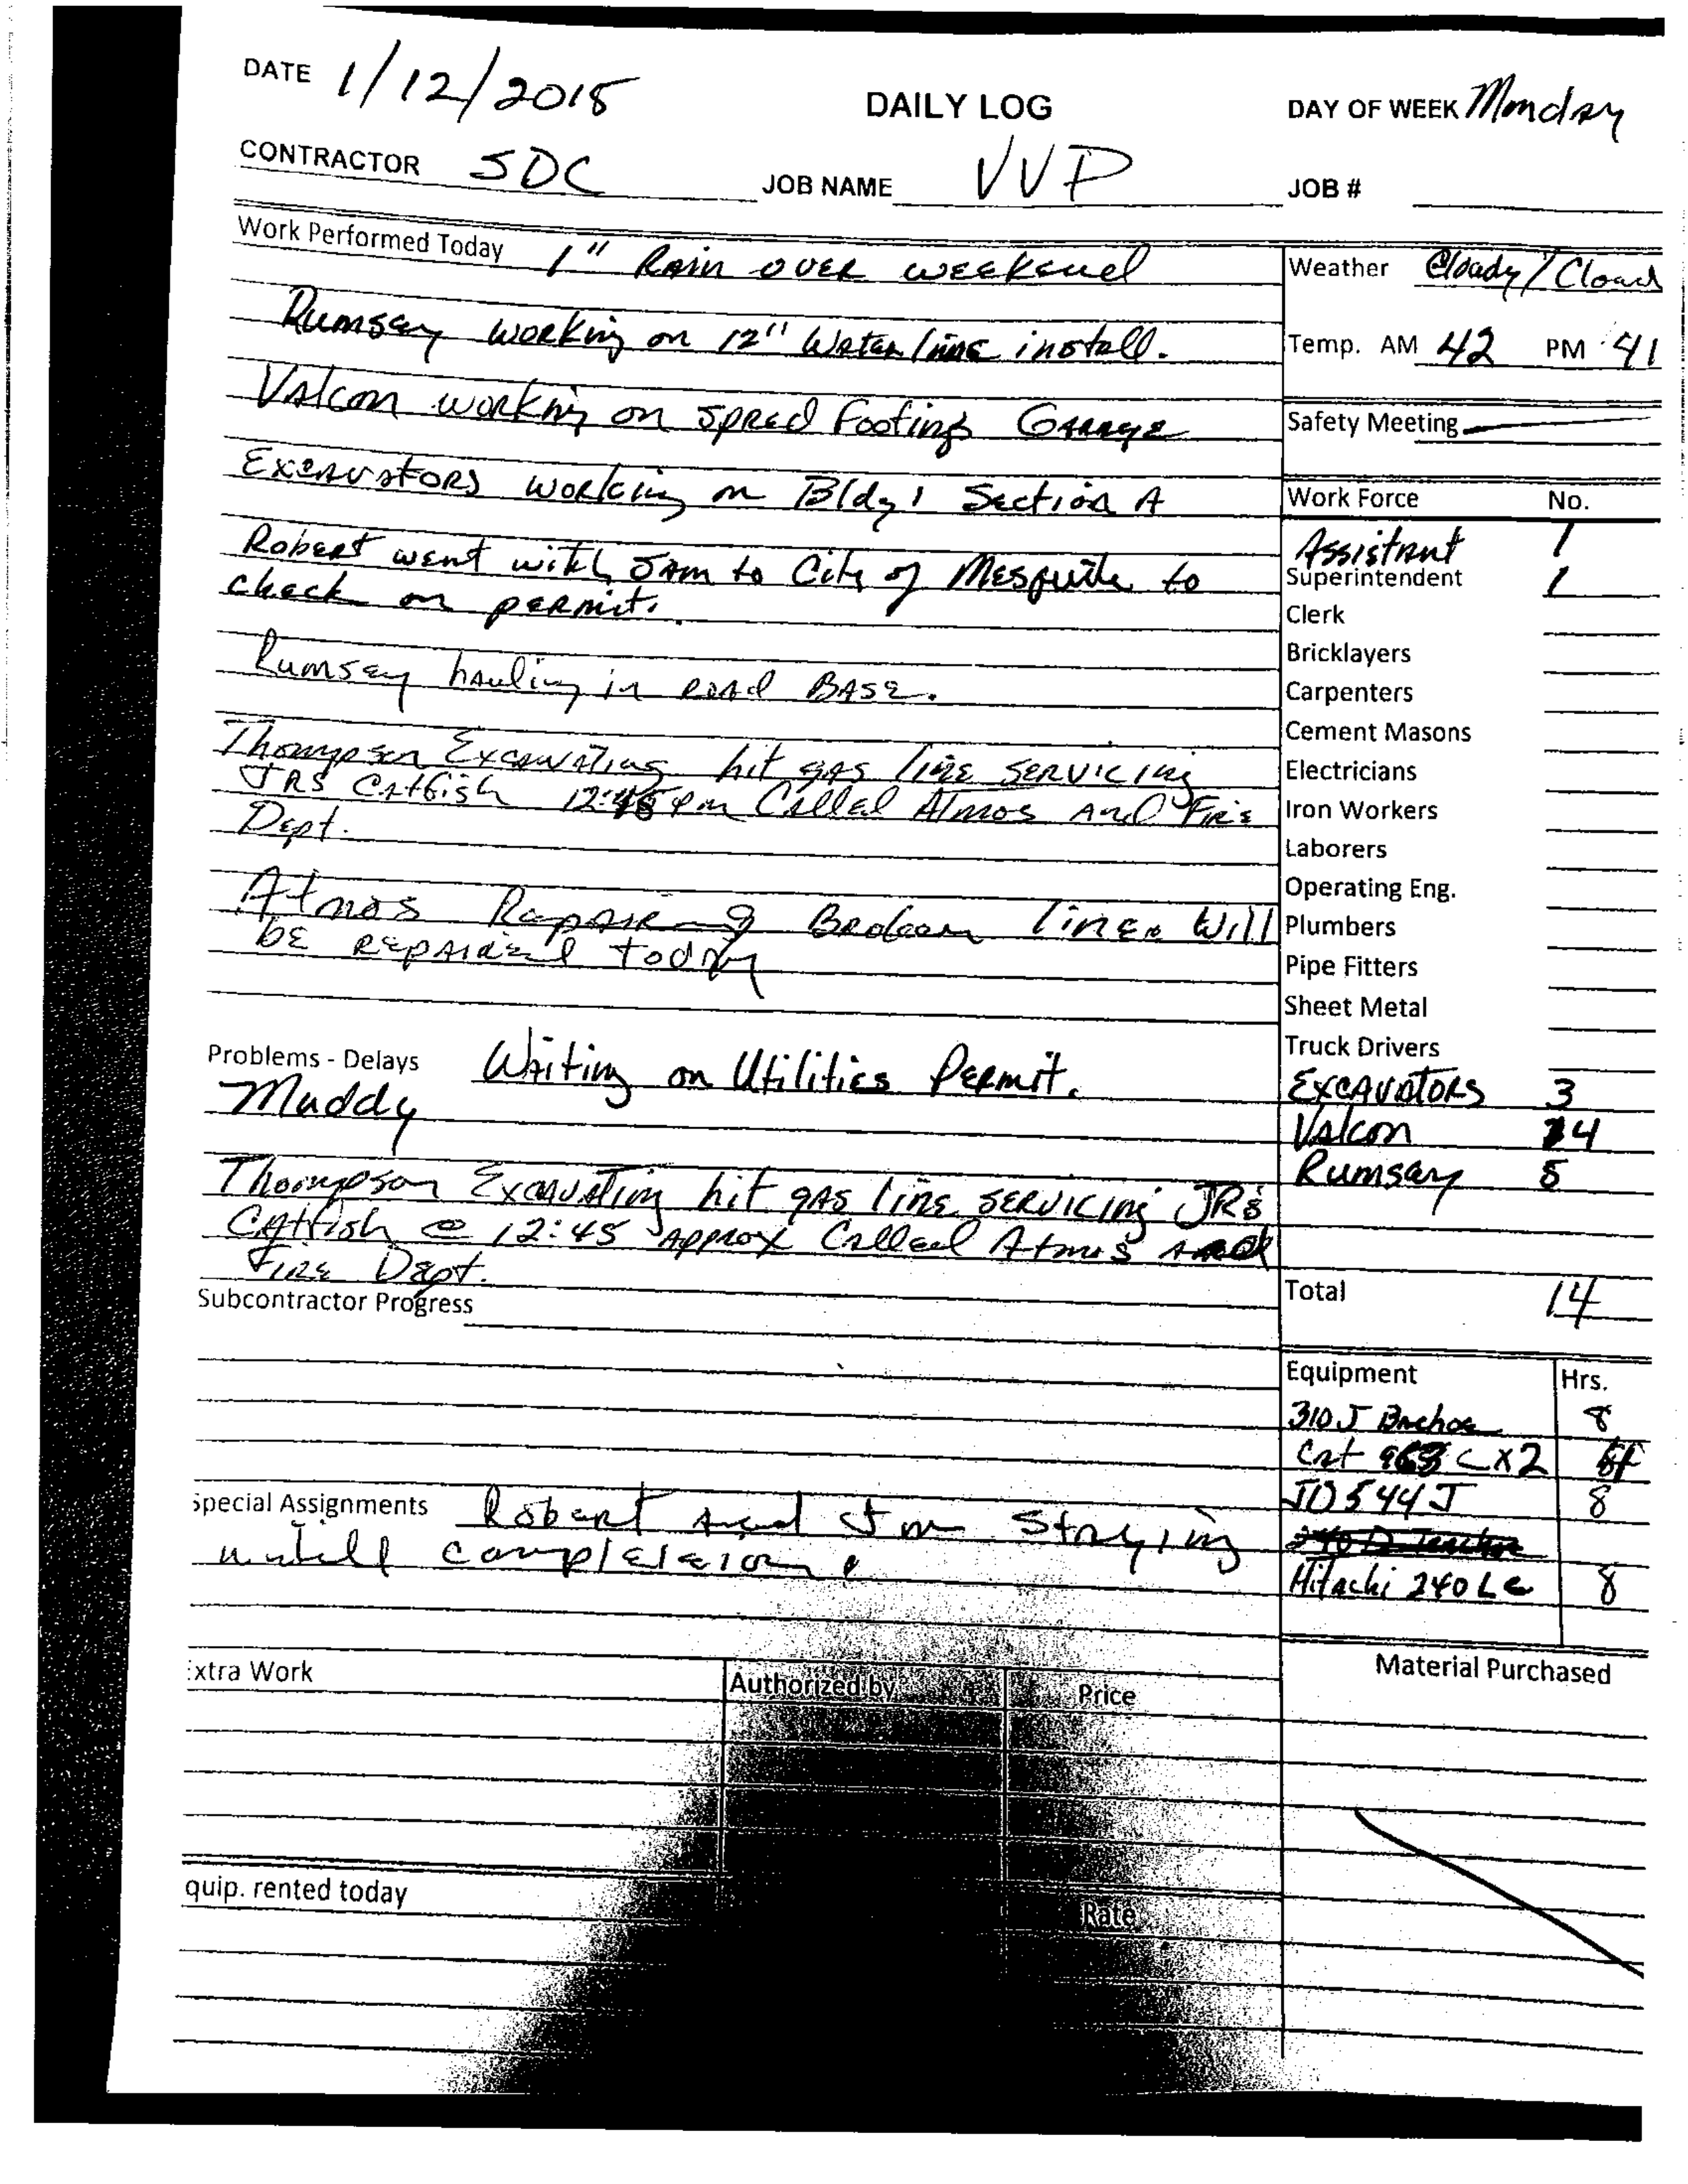 DATE 1/12/2015
DAILY LOG
DAY OF WEEK Monday
CONTRACTOR SDC
JOB NAME VVP
JOB #
Work Performed Today 1" Rain over weekend
Rumsey working on 12" Water line install.
Valcon working on spred footings Garage
Excavators working on Bldg 1 Section A
Robert went with Sam to City of Mesquite to
check on permit.
Rumsey hauling in road Base.
Thompson Excavating hit gas line servicing
JRS Catfish 12:45 pm Called Atmos and Fire
Dept.
Atmos Repairing Broken line. Will
be repaired today
Problems - Delays Waiting on Utilities Permit.
Muddy
Thompson Excavating hit gas line servicing JR's
Catfish @ 12:45 approx Called Atmos and
Fire Dept.
Subcontractor Progress
Special Assignments Robert and Jim Staying
untill completion.
xtra Work
Authorized by
Price
quip. rented today
Rate
Weather Cloudy / Cloud
Temp. AM 42 PM 41
Safety Meeting
Work Force No.
Assistant 1
Superintendent 1
Clerk
Bricklayers
Carpenters
Cement Masons
Electricians
Iron Workers
Laborers
Operating Eng.
Plumbers
Pipe Fitters
Sheet Metal
Truck Drivers
Excavators 3
Valcon 4
Rumsey 5
Total 14
Equipment Hrs.
310 J Bachoe 8
Cat 963 C x2
JD 544 J 8
Hitachi 240 LC 8
Material Purchased